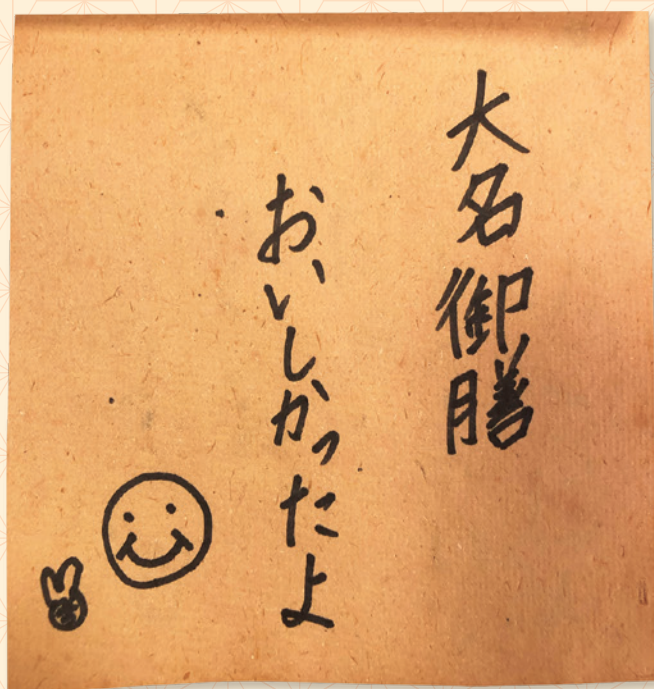 大名御膳
おいしかったよ